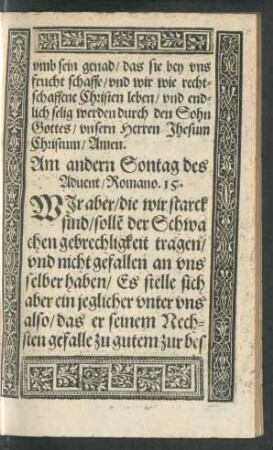 vmb sein genad/ das sie bey vns
frucht schaffe/ vnd wir wie recht-
schaffene Christen leben/ vnd end-
lich selig werden durch den Sohn
Gottes/ vnsern Herren Jhesum
Christum/ Amen.
Am andern Sontag des
Aduent/ Romano. 15.
WJr aber/ die wir starck
sind/ sollē der Schwa
chen gebrechligkeit tragen/
vnd nicht gefallen an vns
selber haben/ Es stelle sich
aber ein jeglicher vnter vns
also/ das er seinem Nech-
sten gefalle zu gutem zur bes